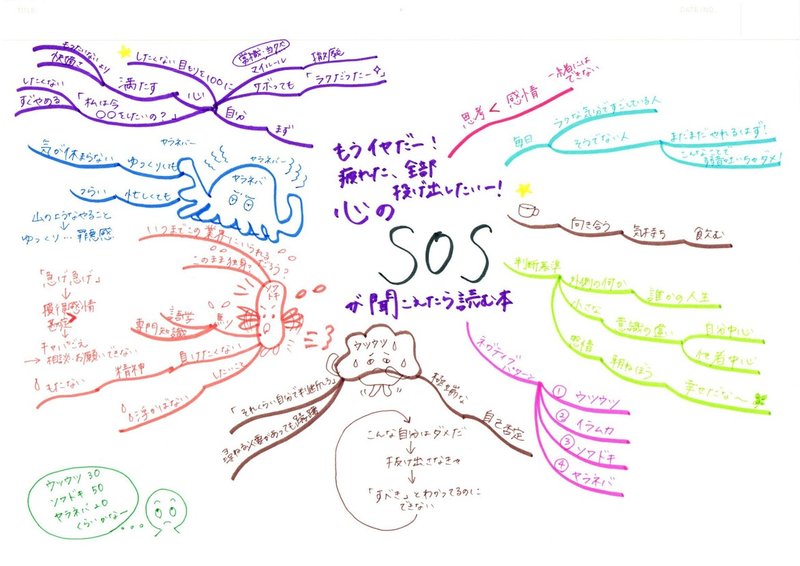 TITLE
DATE/NO.
もうイヤだー!
疲れた、全部
投げ出したいー!
心の
SOS
が聞こえたら読む本
思考 < 感情
一緒には
できない
毎日
ラクな気分ですごしている人
そうでない人
まだまだやれるはず!
こんなことで
弱音吐いちゃダメ!
向き合う
気持ち
飲む
判断基準
外側の何か
誰かの人生
小さな
意識の違い
自分中心
他者中心
感情
幸せだな〜
ネガティブパターン
① ウツウツ
② イラムカ
③ ソワドキ
④ ヤラネバ
ウツウツ
極端な
自己否定
「それくらい自分で判断しろ」
尋ねる必要があっても躊躇
こんな自分はダメだ
抜け出さなきゃ
「すべき」とわかってるのに
できない
ウツウツ 30
ソワドキ 50
ヤラネバ 20
くらいかなー
ソワドキ
いつまでこの業界にいられる
このまま独身でだろう?
語学
専門知識
負けたくない
精神
もたない
したいこと
浮かばない
「急げ急げ」
損得感情
キャパごえ
→ 相談・お願いできない
ヤラネバー
ヤラネバー
ヤラネバ
ゆっくりしても
気が休まらない
忙しくても
つらい
山のようなやること
ゆっくり…罪悪感
まず
自分
心
満たす
もったいないより
快適さ
したくない目もりを100に
常識・カクベ
マイルール
撤廃
サボっても
「ラクだったー」
「私は今
〇〇をしたいの?」
したくない
すぐやめる